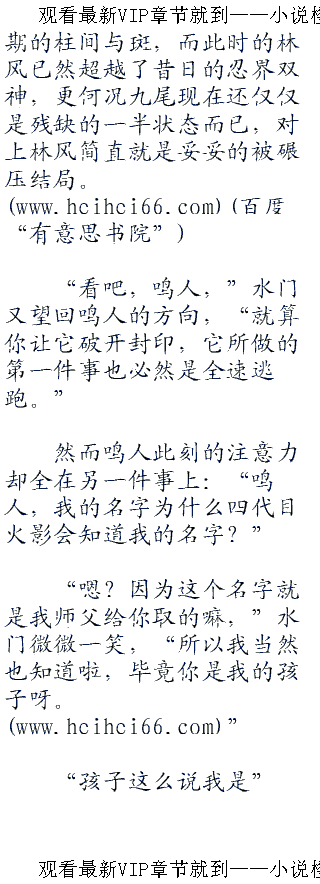 观看最新VIP章节就到——小说检
期的柱间与斑，而此时的林
风已然超越了昔日的忍界双
神，更何况九尾现在还仅仅
是残缺的一半状态而已，对
上林风简直就是妥妥的被碾
压结局。
(www.hcihci66.com)(百度
“有意思书院”)
“看吧，鸣人，”水门
又望回鸣人的方向，“就算
你让它破开封印，它所做的
第一件事也必然是全速逃
跑。”
然而鸣人此刻的注意力
却全在另一件事上：“鸣
人，我的名字为什么四代目
火影会知道我的名字？”
“嗯？因为这个名字就
是我师父给你取的嘛，”水
门微微一笑，“所以我当然
也知道啦，毕竟你是我的孩
子呀。
(www.hcihci66.com)”
“孩子这么说我是”
观看最新VIP章节就到——小说检